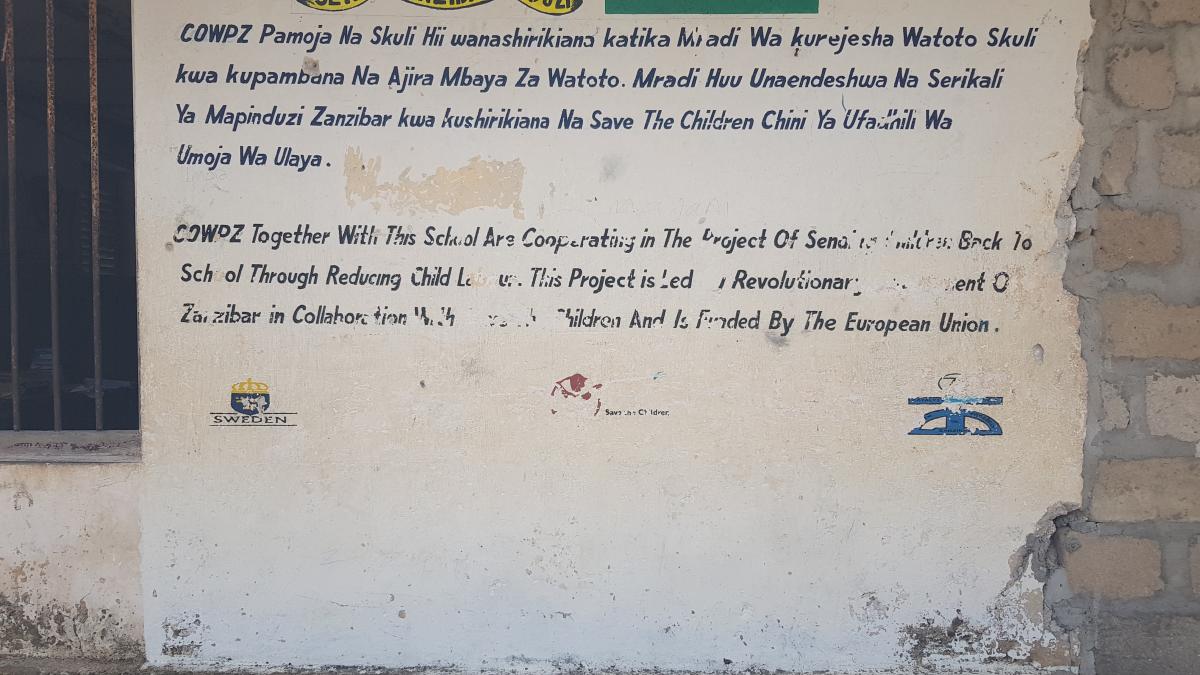 COWPZ Pamoja Na Skuli Hii wanashirikiana katika Mradi Wa kurejesha Watoto Skuli
kwa kupambana Na Ajira Mbaya Za Watoto. Mradi Huu Unaendeshwa Na Serikali
Ya Mapinduzi Zanzibar kwa kushirikiana Na Save The Children Chini Ya Ufadhili Wa
Umoja Wa Ulaya.
COWPZ Together With This School Are Cooperating in The Project Of Children Back To
School Through Reducing Child This Project is Led Revolutionary
Zanzibar in Collaboration With Children And Is Funded By The European Union.
SWEDEN
Save the Children